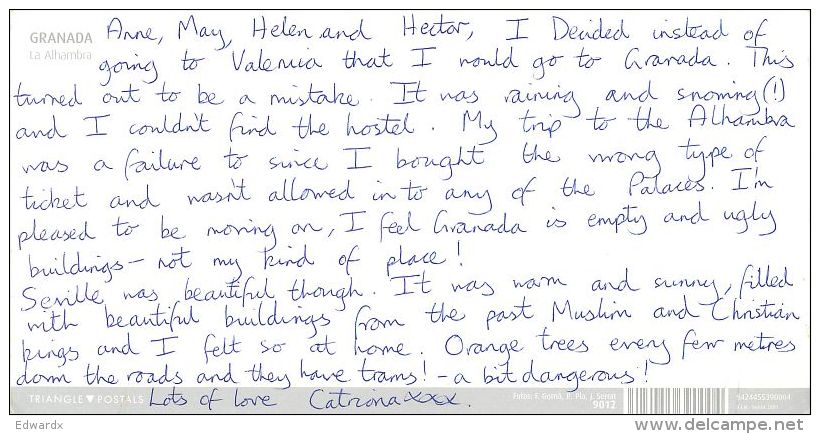 GRANADA
La Alhambra
Anne, May, Helen and Hector, I Decided instead of
going to Valencia that I would go to Granada. This
turned out to be a mistake. It was raining and snowing(!)
and I couldn't find the hostel. My trip to the Alhambra
was a failure to since I bought the wrong type of
ticket and wasn't allowed in to any of the Palaces. I'm
pleased to be moving on, I feel Granada is empty and ugly
buildings – not my kind of place!
Seville was beautiful though. It was warm and sunny, filled
with beautiful buildings from the past Muslim and Christian
kings and I felt so at home. Orange trees every few metres
down the roads and they have trams! – a bit dangerous!
Lots of love Catriona xxx.
TRIANGLE ▼ POSTALS
Fotos: F. Gomà, P. Pla, J. Serrat
9012
8424455390004
Edwardx
delcampe.net